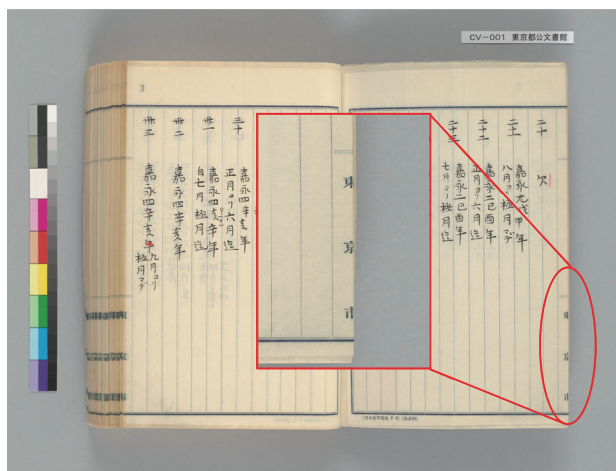 CV－001 東京都公文書館
二十 欠
二十一 嘉永元戊申年
八月ヨリ極月マデ
二十二 嘉永二己酉年
正月ヨリ六月迄
二十三 嘉永二己酉年
七月ヨリ極月迄
東京市
東京市
3
三十 嘉永四辛亥年
正月ヨリ六月迄
卅一 嘉永四亥辛年
自七月極月迄
卅二 嘉永四辛亥年
卅三 嘉永四辛亥年九月ヨリ
極月マデ